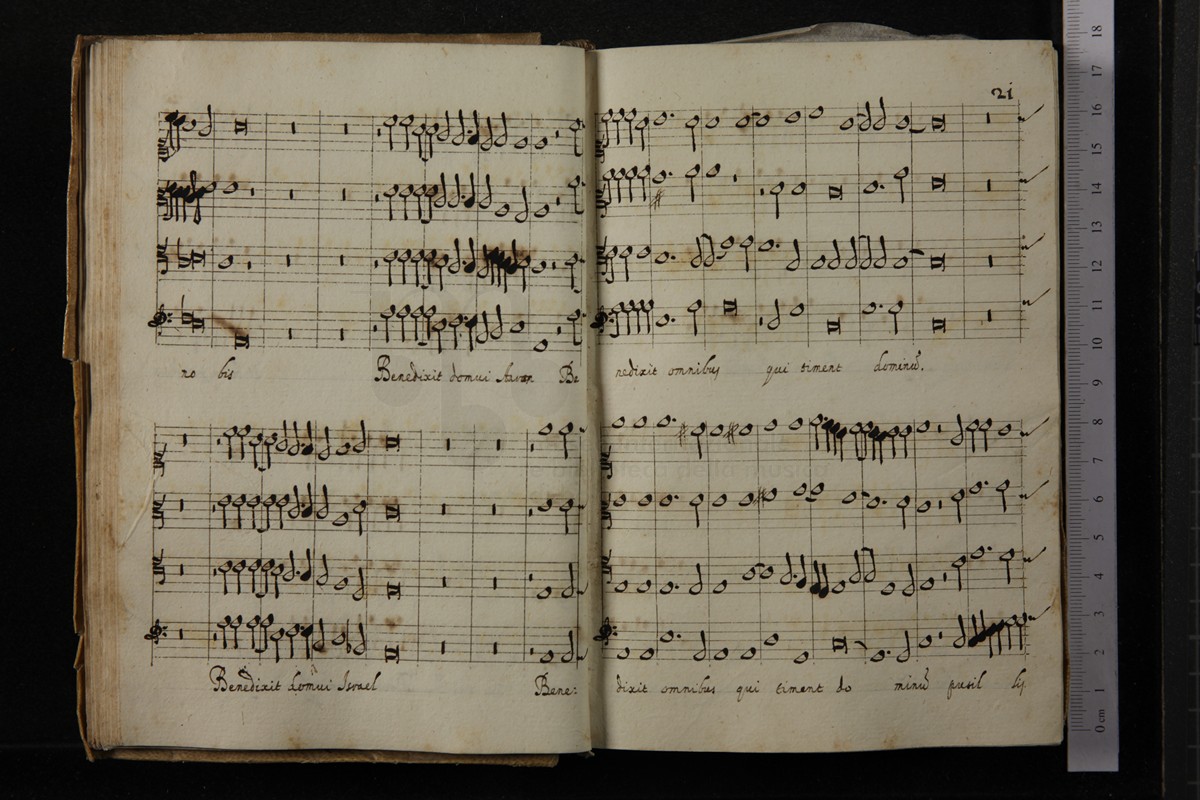 21
no bis Benedixit domui Aaron Be nedixit omnibus qui timent dominũ.
Benedixit domui Israel Bene: dixit omnibus qui timent do minũ pusil lis
e biblioteca della musica
0 cm 1 2 3 4 5 6 7 8 9 10 11 12 13 14 15 16 17 18